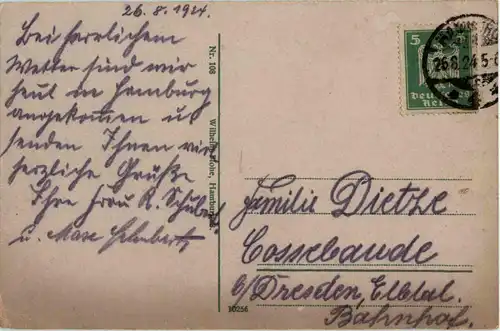 26.8.1924.
Bei herrlichem
Wetter sind wir
heut in Hamburg
angekommen u.
senden Ihnen wir
herzliche Grüße
Ihre Frau R. Schubert
u. Max Schubert
Nr. 108
Wilhelm Hobe, Hamburg
5
Deutsches
Reich
26.8.24.5-6
Familie Dietze
Cossebaude
b/Dresden, Elbtal.
Bahnhof.
10256